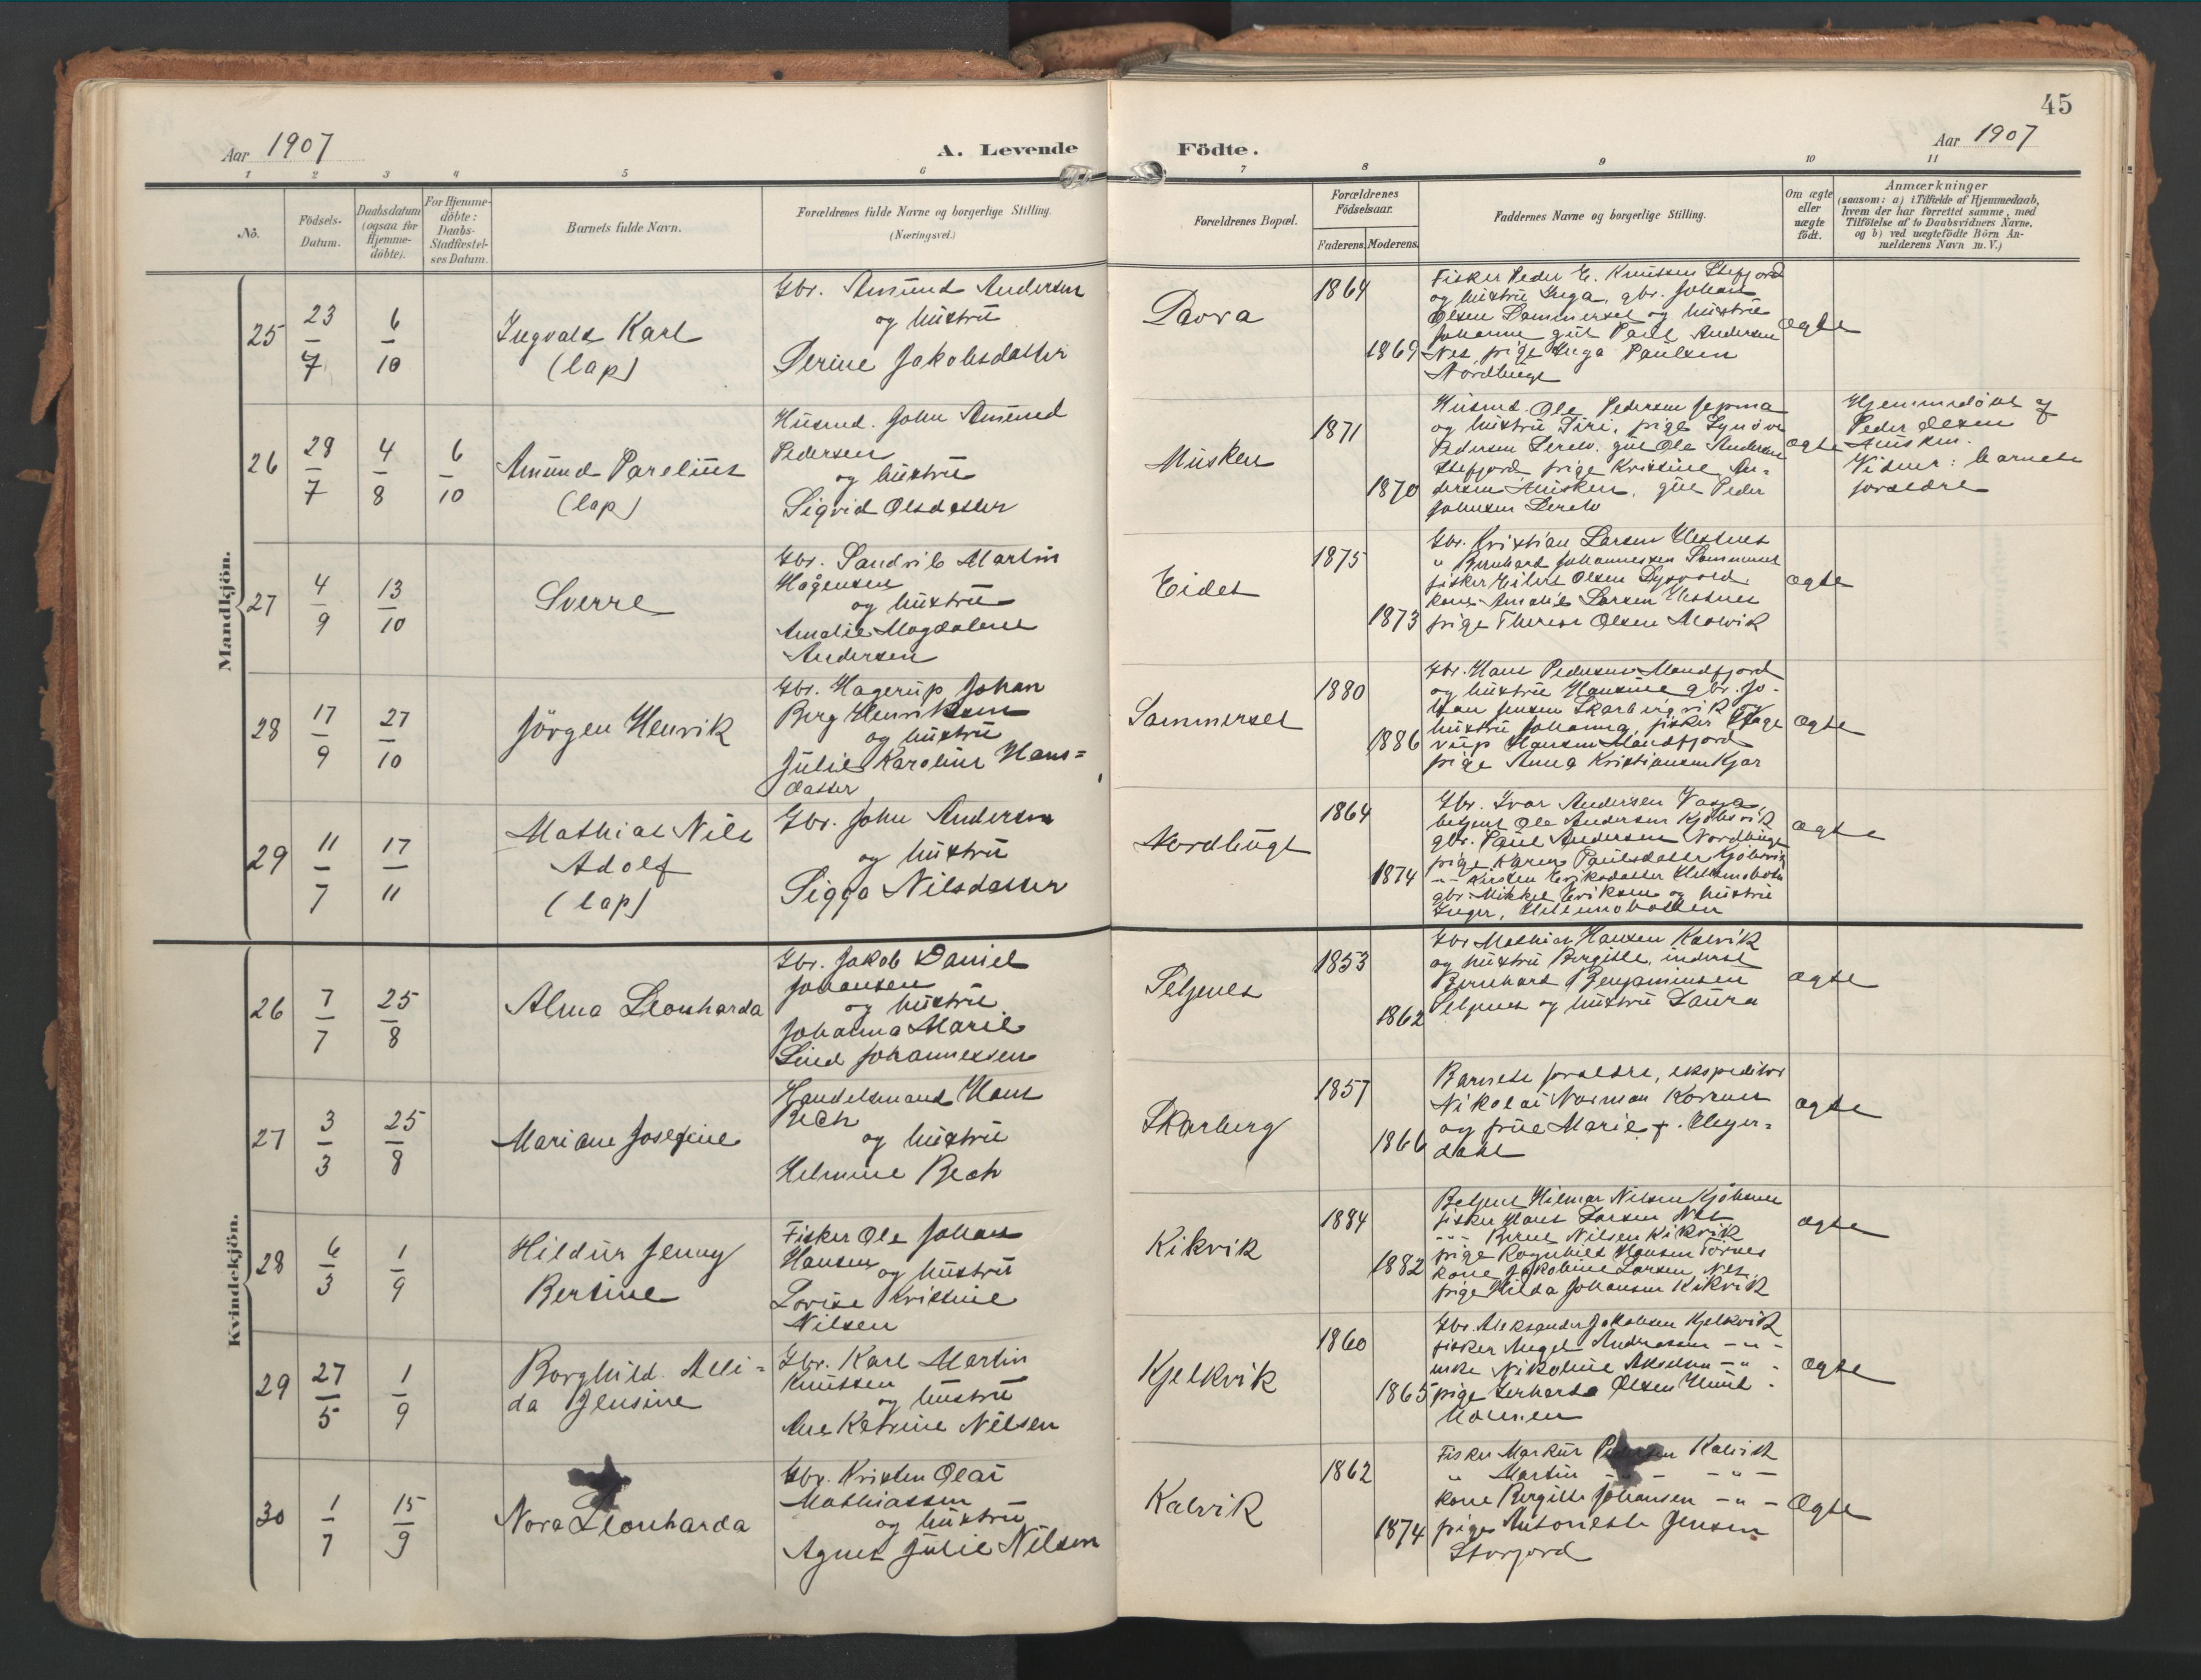 45
Aar 1907
A. Levende
Födte.
Aar 1907
1 2 3 4 5 6 7 8 9 10 11
No.
Födsels-
Datum.
Daabsdatum
(ogsaa for
Hjemme-
döbte).
For Hjemme-
döbte:
Daabs-
Stadfæstel-
ses Datum.
Barnets fulde Navn.
Forældrenes fulde Navne og borgerlige Stilling.
(Næringsvei.)
Forældrenes Bopæl.
Forældrenes
Födselsaar.
Faderens. Moderens.
Faddernes Navne og borgerlige Stilling.
Om ægte
eller
uægte
født.
Anmærkninger
(saasom: a) i Tilfælde af Hjemmedaab,
hvem der har forrettet samme, med
Tilföielse af to Daabsvidners Navne,
og b) ved uægtefödte Börn An-
melderens Navn m. V.)
Mandkjön.
25
23
7
6
10
Ingvald Karl
(lap)
Gbr. Amund Andersen
og hustru
Perine Jakobsdatter
1864
1869
Fisker Peder E. Knutsen Stefjord
og hustru Inga, gbr. Johan
Olsen Sommerset og hustru
Johanna gut Paul Andersen
Nes, pige Inga Paulsen
Nordbugt
ægte
26
28
7
4
8
6
10
Amund Parelius
(lap)
Husmd. John Amund
Pedersen
og hustru
Sigrid Olsdatter
Musken
1871
1870
Husmd. Ole Pedersen
og hustru Siri, pige Synöve
Pedersen gut Ole Andersen
Stefjord pige Kristine An-
dersen Musken, gut Peder
Johnsen
ægte
Hjemmedöbt af
Peder Olsen
Musken.
Vidner: barnets
foraeldre
27
4
9
13
10
Sverre
Gbr. Sandvik Martin
Hagensen
og hustru
Amalie Magdalene
Andersen
Eidet
1875
1873
Gbr. Kristian Larsen Hestnes
" Bernhard Johannessen Sommerset
fisker Eilert Olsen Dypvold
kone Amalie Larsen Hestnes
pige Therese Olsen
ægte
28
17
9
27
10
Jörgen Henrik
Gbr. Hagerup Johan
Berg Henriksen
og hustru
Julie Karoline Hans=
datter
Sommerset
1880
1886
Gbr. Hans Pedersen Mandfjord
og hustru Hansine gbr. Jo-
han Jensen Skarbergvik
hustru Johanna, fisker Hage
rup Hansen Mandfjord
pige Anna Kristiansen Kjær
ægte
29
11
7
17
11
Mathias Nils
Adolf
(lap)
Gbr. John Andersen
og hustru
Sigga Nilsdatter
Nordbugt
1864
1874
Gbr. Ivar Andersen
betjent Ole Andersen Kjöbsvik
gbr. Paul Andersen Nordbugt
pige Karen Paulsdatter Kjöbsvik
-"- Kirsten Eriksdatter Hellemobotn
gbr. Mikkel Eriksen og hustru
Inger, Hellemobotten
ægte
Kvindekjön.
26
7
7
25
8
Alma Leonharda
Gbr. Jakob Daniel
Johansen
og hustru
Johanna Marie
Lind Johannessen
Peljenes
1853
1862
Gbr Mathias Hansen Kalvik
og hustru Bergitte, inderst
Bernhard Benjaminsen
og hustru Laura
ægte
27
3
3
25
8
Mariane Josefine
Handelsmand Hans
Bech
og hustru
Helmine Bech
Skarberg
1857
1866
Barnets foraeldre, ekspeditör
Nikolai Norman Korsnes
og frue Marie f. Heyer=
dahl
ægte
28
6
3
1
9
Hildur Jenny
Bertine
Fisker Ole Johan
Hansen
og hustru
Lovise Kristine
Nilsen
Kikvik
1884
1882
Betjent Hilmar Nilsen
fisker Hans Larsen Nes
-"- Bernt Nilsen Kikvik
pige Ragnhild Hansen
kone Jakobine Larsen Nes
pige Hilda Johansen Kikvik
ægte
29
27
5
1
9
Borghild Alli=
da Jensine
Gbr. Karl Martin
Knutsen
og hustru
Ane Katrine Nilsen
Kjelkvik
1860
1865
Gbr. Aleksander Jakobsen Kjelkvik
fisker Angel Andreasen -"-
enke Nikoline Akselsen -"-
pige Gerharda Olsen Hund-
holmen
ægte
30
1
7
15
9
Nora Leonharda
Gbr. Kristen Olai
Mathiassen
og hustru
Agnes Julie Nilsen
Kalvik
1862
1874
Fisker Markus Pedersen Kalvik
" Martin -"- -"-
kone Bergitte Johansen -"-
pige Antonette Jensen
Storjord
Ægte